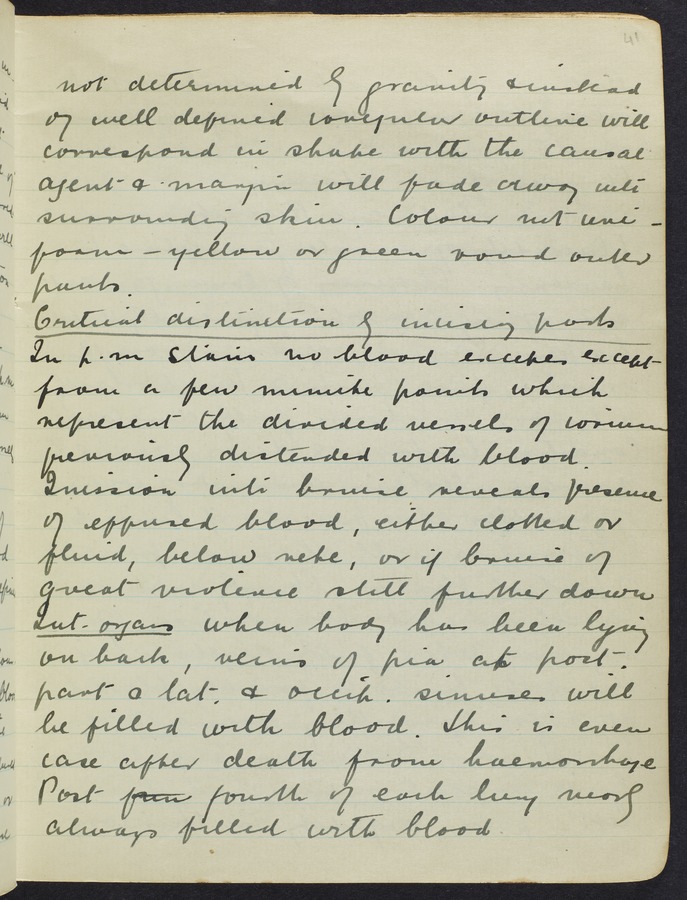 41
not determined by gravity & instead
of well defined irregular outline will
correspond in shape with the causal
agent & margin will fade away into
surrounding skin. Colour not uni-
form - yellow or green round outer
parts.
Critical distinction by incising parts
In p.m stain no blood escapes except
from a few minute points which
represent the divided vessels of
previously distended with blood.
Incision into bruise reveals presence
of effused blood, either clotted or
fluid, below rete, or if bruise of
great violence still further down
Int. organs when body has been lying
on back, veins of pia at post.
part & lat. & occip. sinuses will
be filled with blood. This is even
case after death from haemorrhage
Post fourth of each lung nearly
always filled with blood